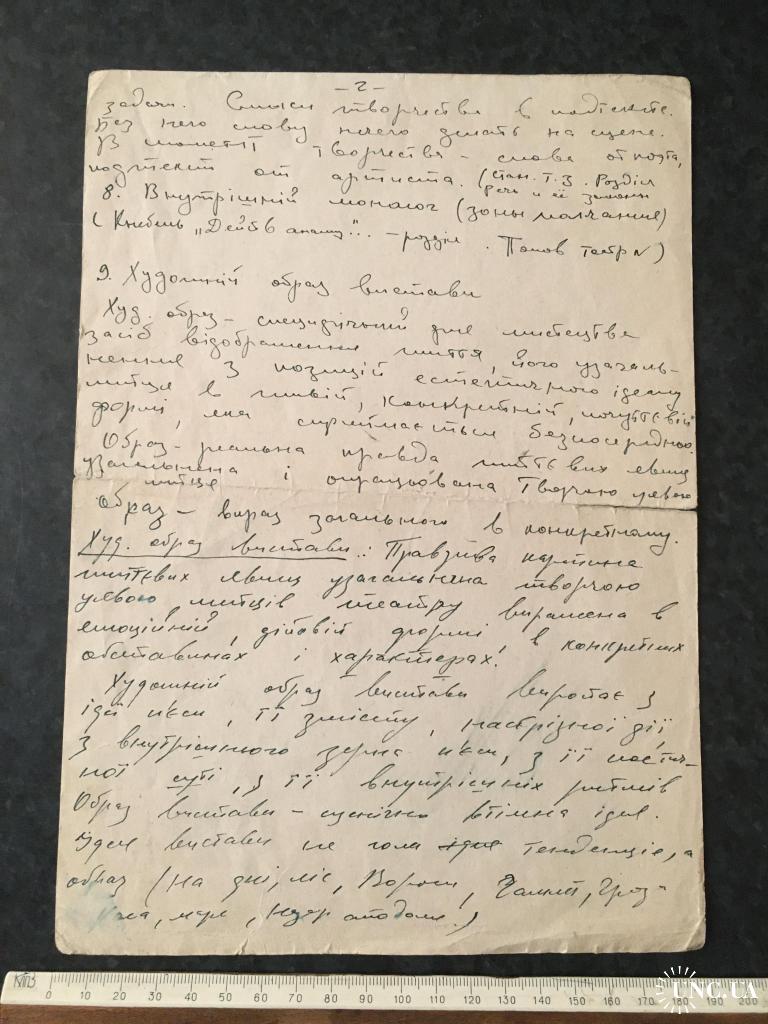 - 2 -
задачи. Смысл творчества в подтексте.
Без него слову нечего делать на сцене.
В момент творчества - слова от поэта,
подтекст от артиста. (Стан. Т.3. Розділ
Речь и её законы
8. Внутрішній монолог (зоны молчания)
(Кнебель "Действ анализ"... - розділ. Попов театр )
9. Художній образ вистави
Худ. образ - специфічний для мистецтва
засіб відображення життя, його узагаль-
нення з позицій естетичного ідеалу
митця в живій, конкретній, почуттєвій
формі, яка сприймається безпосередньо.
Образ - реальна правда життєвих явищ
узагальнена і опрацьована творчою уявою
митця
Образ - вираз загального в конкретному.
Худ. образ вистави.: Правдива картина
життєвих явищ узагальнена творчою
уявою митців театру виражена в
емоційній, дійовій формі, в конкретних
обставинах і характерах.
Художній образ вистави виростає з
ідеї п'єси, її змісту, наскрізної дії,
з внутрішнього зерна п'єси, з її поетич-
ної суті, з її внутрішніх ритмів
Образ вистави - сценічно втілена ідея.
Ідея вистави не гола ідея тенденція, а
образ (На дні, ліс, Вороги, Гамлет, Гроз-
на, )
КТПЗ 0 10 20 30 40 50 60 70 80 90 100 110 120 130 140 150 160 170 180 190 200
UNC.UA